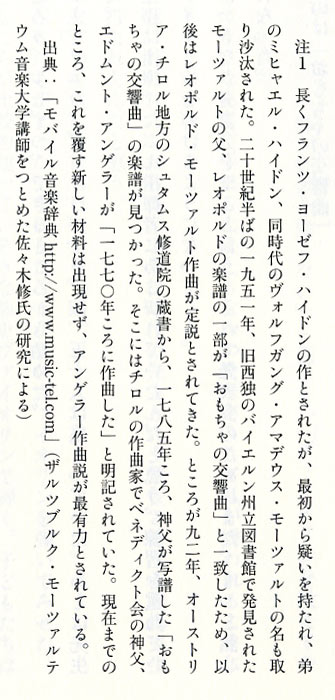 注1 長くフランツ・ヨーゼフ・ハイドンの作とされたが、最初から疑いを持たれ、弟
のミヒャエル・ハイドン、同時代のヴォルフガング・アマデウス・モーツァルトの名も取
り沙汰された。二十世紀半ばの一九五一年、旧西独のバイエルン州立図書館で発見された
モーツァルトの父、レオポルドの楽譜の一部が「おもちゃの交響曲」と一致したため、以
後はレオポルド・モーツァルト作曲が定説とされてきた。ところが九二年、オーストリ
ア・チロル地方のシュタムス修道院の蔵書から、一七八五年ころ、神父が写譜した「おも
ちゃの交響曲」の楽譜が見つかった。そこにはチロルの作曲家でベネディクト会の神父、
エドムント・アンゲラーが「一七七〇年ころに作曲した」と明記されていた。現在までの
ところ、これを覆す新しい材料は出現せず、アンゲラー作曲説が最有力とされている。
出典：「モバイル音楽辞典 http://www.music-tel.com」（ザルツブルク・モーツァルテ
ウム音楽大学講師をつとめた佐々木修氏の研究による）